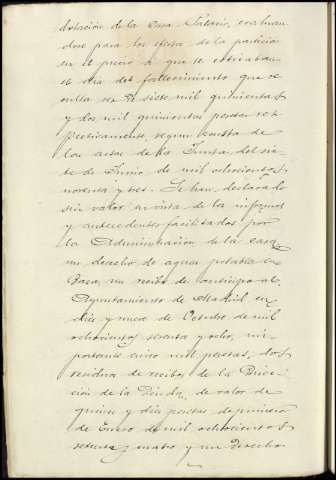 dotación de la Casa-Palacio, evaluan
dose para los efectos de la partición
en el precio á que se cotizaban
el dia del fallecimiento que re
sulta ser de siete mil quinientas
y dos mil quinientas pesetas res
pectivamente, segun consta de
las actas de la Junta del sie
te de Junio de mil ochocientos
noventa y tres. Se han declarado
sin valor en vista de los informes
y antecedentes facilitados por
la Administracion de la casa
un derecho de aguas potables en
Baza, un recibo de anticipo al
Ayuntamiento de Madrid en
diez y nueve de Octubre de mil
ochocientos sesenta y ocho, im
portante cinco mil pesetas, dos
residuos de recibos de la Direc
ción de la Deuda, de valor de
quince y diez pesetas de primero
de Enero de mil ochocientos
setenta y cuatro y un Derecho